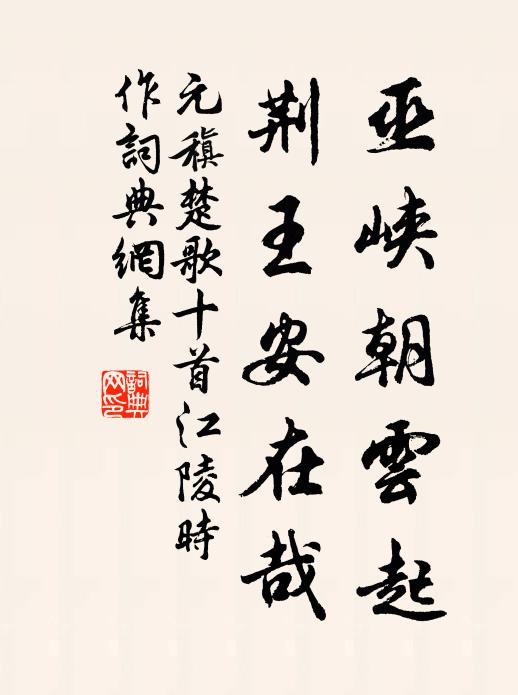 巫峽朝雲起
荆王安在哉
元稹楚歌十首江陵時
作詞典網集
詞典
网印